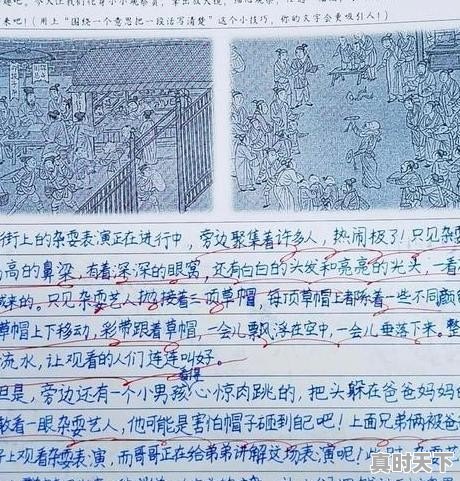 来吧！（用上“围绕一个意思把一段话写清楚”这个小技巧，你的文字会更吸引人！）
街上的杂耍表演正在进行中，旁边聚集着许多人，热闹极了！只见
高高的鼻梁，有着深深的眼窝，还有白白的头发和亮亮的光头，一看
来的。只见杂耍艺人抛接着三顶草帽，每顶草帽上者除着一些不同颜
草帽上下移动，彩带跟着草帽，一会儿飘浮在空中，一会儿垂落下来。整
流水，让观看的人们连连叫好。
看得
但是，旁边还有一个小男孩心惊肉跳的，把头躲在爸爸妈妈的
敢看一眼杂耍艺人，他可能是害怕帽子砸到自己吧！上面兄弟俩被爸
上观看杂耍表演，而哥哥正在给弟弟讲解这场表演呢！
真时天下